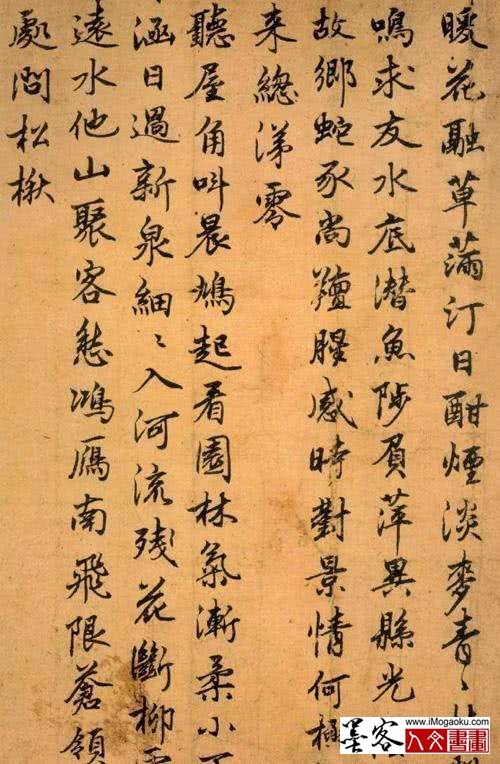 暖花融草滿汀日酣煙淡麥青〻
鳴求友水底潛魚陟負萍異縣光
故鄉蛇豕尚羶腥感時對景情何極
来總涕零
聽屋角叫晨鳩起看園林氣漸柔小
涵日過新泉細〻入河流残花斷柳
遠水他山聚客愁鴻雁南飛限蒼領
處問松楸
墨客 www.iMogaoku.com
人文書畫